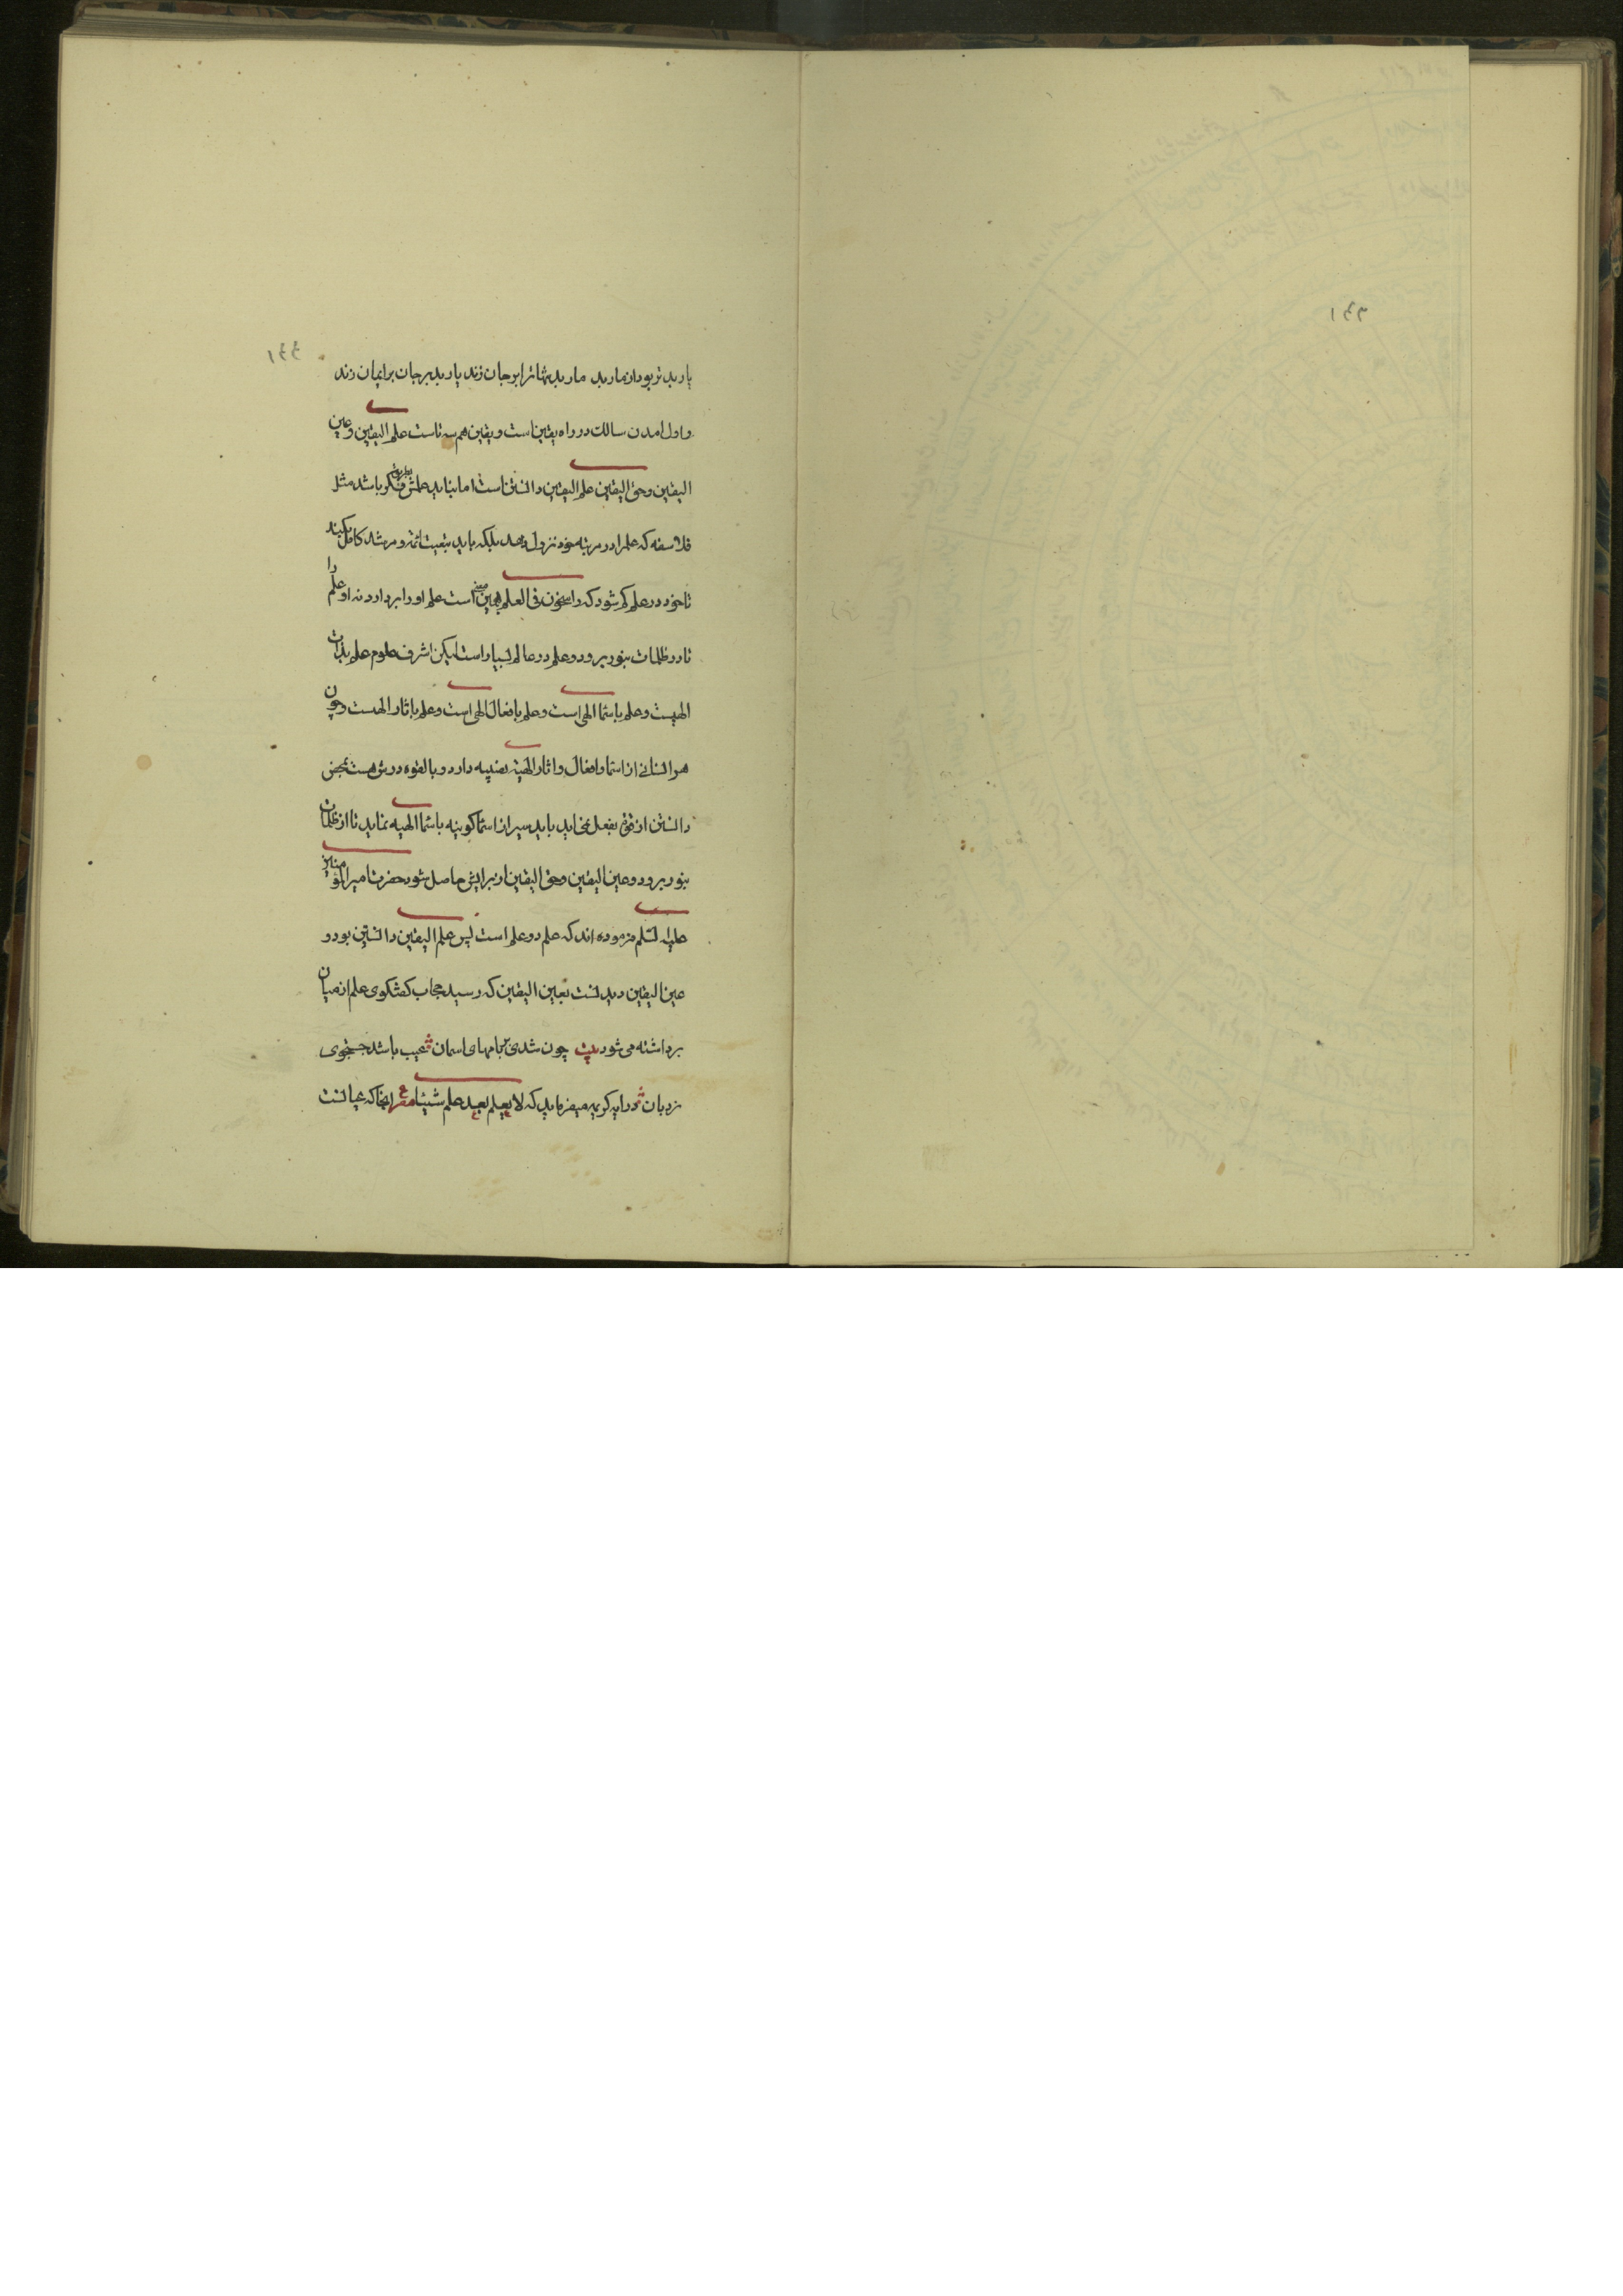 یار بد تر بود از مار بد مار بد تنها ترا بر جان زند یار بد بر جان بر ایمان زند
و اول امدن سالك در راه یقین است و یقین هم سه تاست علم الیقین و عین
الیقین و حق الیقین علم الیقین دانستن است اما نباید علمش بطریق فکر باشد مثل
فلاسفه که علم را در مرتبه خود نزول دهد بلکه باید بتبعیت ائمه و مرشد کامل بکند
تا خود در علم گم شود که راسخون فی العلم همین است علم او را بردارد نه او علم را
تا در ظلمات بنور برود و علم در عالم بسیار است لیکن اشرف علوم علم بذات
الهیست و علم باسما الهی است و علم بافعال الهی است و علم باثار الهیست و چون
هر انسانی از اسما و افعال و اثار الهیه نصیبه دارد و بالقوه درش هست بمحض
دانستن از قوه بفعل نمیاید باید سیر از اسما کونیه باسما الهیه نماید تا از ظلمات
بنور برود و عین الیقین و حق الیقین از برایش حاصل شود حضرت امیر المؤمنین
علیه السلم فرموده اند که علم دو علم است پس علم الیقین دانستن بود و
عین الیقین دیدنست بعین الیقین که رسید حجاب گفتگوی علم از میان
برداشته می شود بیت چون شدی بر بامهای اسمان عیب باشد جستجوی
نردبان در ایه کریمه میفرماید که لا یعلم بعد علم شیئا مصرع انجا که عیانست
۱۶۶